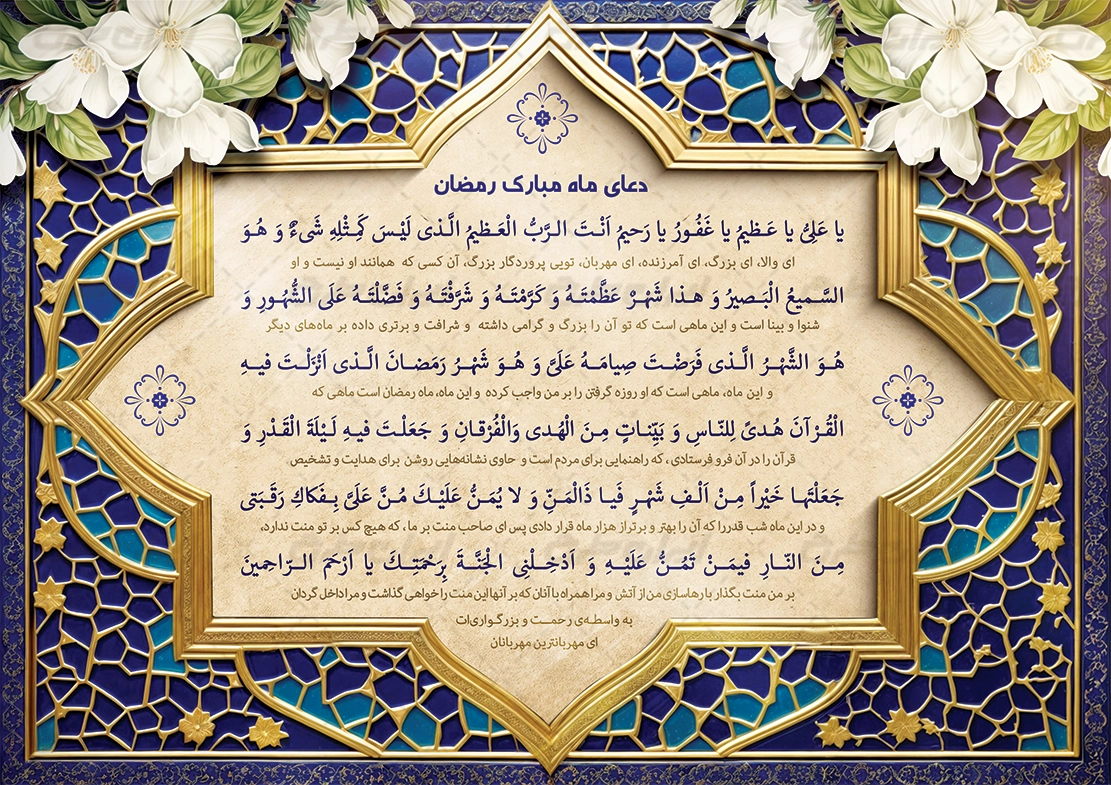 دعای ماه مبارک رمضان
یا عَلِیُّ یا عَـظیمُ یا غَفُورُ یا رَحیمُ اَنْـتَ الـرَّبُّ الْعَـظیمُ الَّـذی لَیْـسَ کَمِـثْلِهِ شَیءٌ وَ هُـوَ
ای والا، ای بزرگ، ای آمرزنده، ای مهربان، تویی پروردگار بزرگ، آن کسی که همانند او نیست و او
السَّـمیعُ الْبَـصیرُ وَ هـذا شَهْـرٌ عَظَّمْتَـهُ وَ کَرَّمْتَـهُ وَ شَرَّفْتَـهُ وَ فَضَّلْتَـهُ عَلَی الشُّهُـورِ وَ
شنوا و بینا است و این ماهی است که تو آن را بزرگ و گرامی داشته و شرافت و برتری داده بر ماه‌های دیگر
هُـوَ الشَّهْـرُ الَّـذی فَرَضْـتَ صِیامَـهُ عَلَیَّ وَ هُـوَ شَهْـرُ رَمَضـانَ الَّـذی اَنْزَلْـتَ فیـهِ
و این ماه، ماهی است که او روزه گرفتن را بر من واجب کرده و این ماه، ماه رمضان است ماهی که
الْقُـرْآنَ هُـدیً لِلنّـاسِ وَ بَیِّنـاتٍ مِـنَ الْهُـدی وَالْفُرْقـانِ وَ جَعَلْـتَ فیـهِ لَـیْلَةَ الْقَـدْرِ وَ
قرآن را در آن فرو فرستادی، که راهنمایی برای مردم است و حاوی نشانه‌هایی روشن برای هدایت و تشخیص
جَعَلْتَهـا خَیْـراً مِـنْ اَلْـفِ شَهْـرٍ فَیـا ذَالْمَـنِّ وَ لا یُمَـنُّ عَلَیْـكَ مُـنَّ عَلَیَّ بِـفَکاكِ رَقَـبَتی
و در این ماه شب قدر را که آن را بهتر و برتر از هزار ماه قرار دادی پس ای صاحب منت بر ما، که هیچ کس بر تو منت ندارد،
مِـنَ النّـارِ فیمَـنْ تَمُـنُّ عَلَیْـهِ وَ اَدْخِـلْنِی الْجَنَّـةَ بِرَحْمَتِـكَ یا اَرْحَمَ الـرّاحِمینَ
بر من منت بگذار با رهاسازی من از آتش و مرا همراه با آنان که بر آنها این منت را خواهی گذاشت و مرا داخل گردان
به واسطـه‌ی رحمـت و بزرگـواری‌ات
ای مهربانترین مهربانان